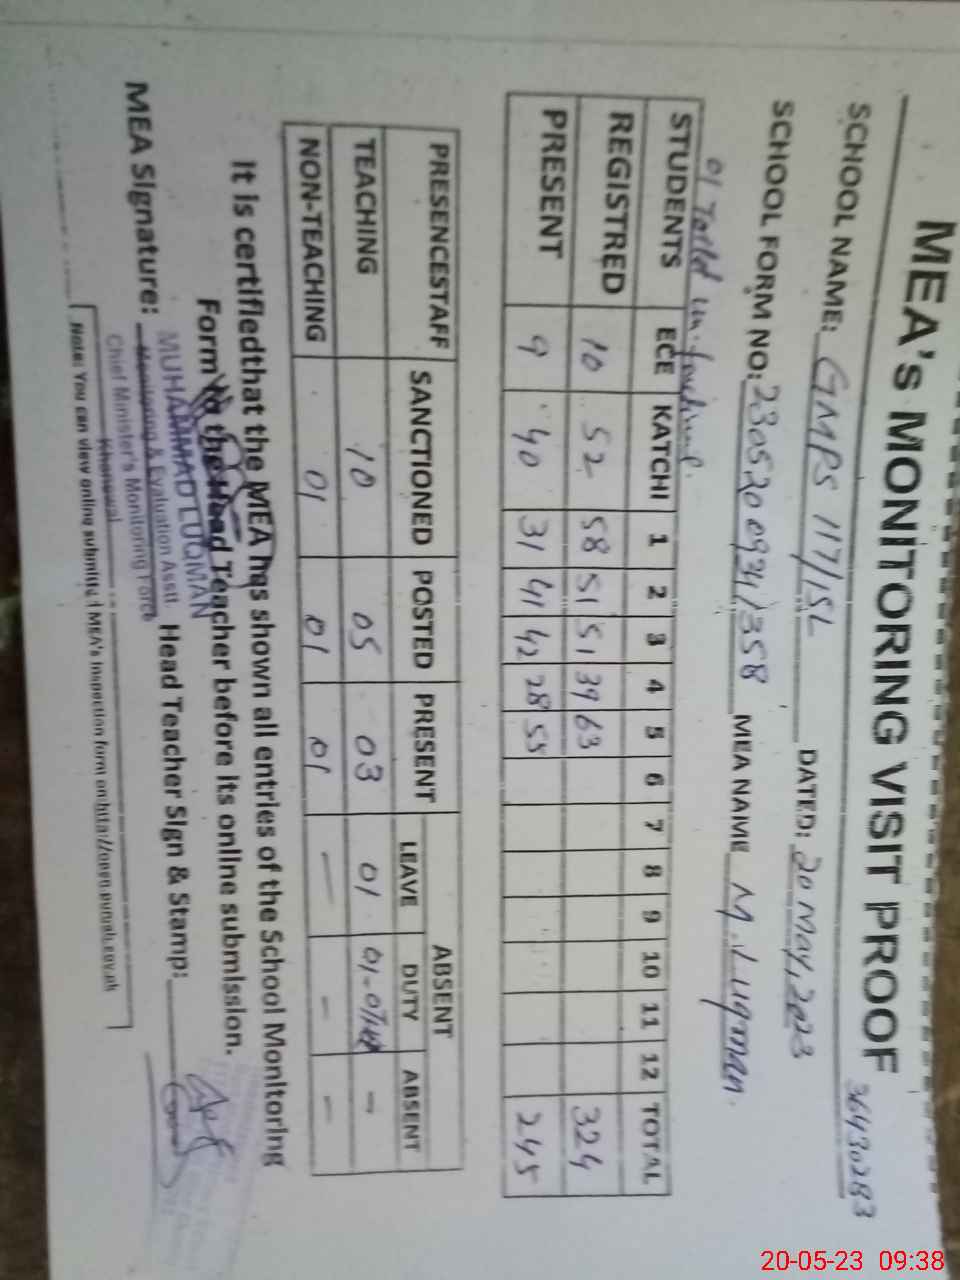 MEA's MONITORING VISIT PROOF
36430283
SCHOOL NAME: GMPS 117/15L DATED: 20 May, 2023
SCHOOL FORM NO: 23052009341358 MEA NAME M. Luqman.
01 Toilet un-functional.
STUDENTS ECE KATCHI 1 2 3 4 5 6 7 8 9 10 11 12 TOTAL
REGISTRED 10 52 58 51 51 39 63 324
PRESENT 9 40 31 41 42 28 55 245
PRESENCESTAFF SANCTIONED POSTED PRESENT ABSENT
LEAVE DUTY ABSENT
TEACHING 10 05 03 01 01-07 -
NON-TEACHING 01 01 01 - - -
It is certifiedthat the MEA has shown all entries of the School Monitoring
Form to the Head Teacher before its online submission.
MEA Signature: Head Teacher Sign & Stamp:
MUHAMMAD LUQMAN
Monitoring & Evaluation Asstt.
Chief Minister's Monitoring Force
Khanewal
Note: You can view online submitted MEA's inspection form on http://open.punjab.gov.pk
20-05-23 09:38